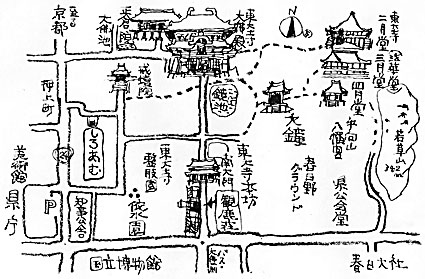 至る
京都
大仏池
東大寺
大仏殿
鏡池
戒壇院
押上町
しろあむ
美術館
県庁
P
知事公舎
東大寺
整肢園
依水園
国立博物館
南大門
東大寺本坊
観鹿荘
大鐘
春日野
グラウンド
東大寺
二月堂
三月堂
法華堂
四月堂
手向山
八幡宮
若草山
342m
県公会堂
春日大社